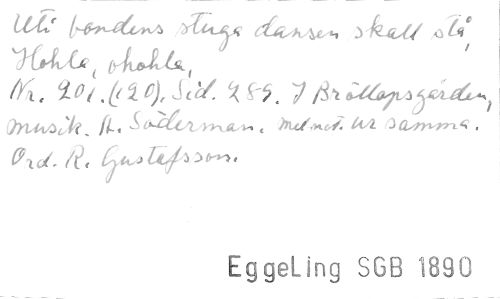 Uti bondens stuga dansen skall stå,
Hohla, ohohla,
Nr. 201. (120). Sid. 289. I Bröllopsgården,
musik. A. Söderman. mel. not. ur samma.
Ord. R. Gustafsson.
EggeLing SGB 1890